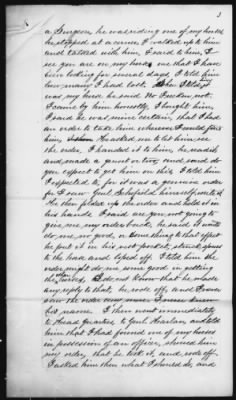 3
a Surgeon, he was riding one of my horses
he stopped at a corner, I walked up to him
and talked with him, I said to him, I
see you are on my horse one that I have
been looking for several days I told him
how many I had lost.
was my horse he said No I reckon not,
I came by him honestly, I bought him,
I said he was mine certain, that I had
an order to take him wherever I could find
him, he asked me to let him see
the order, I handed it to him, he read it
and made a grunt or two, and said do
you expect to get him on this, I told him
I expected to, for it was a genuine order
for I saw Genl Schofield himself write it
He then folded up the order and held it in
his hands I said are you not going to
give me my order back, he said it would
do me no good or some thing to that effect
he put it in his vest pocket, struck spurs
to the horse and loped off. I told him the
order might do me some good in getting
the others, I do not know that he made
any reply to that, he rode off, and I never
saw the order any more. I never knew
his name. I then went immediately
to Head quarters to Genl Harlan, and told
him that I had found one of my horses
in possession of an officer, showed him
my order, that he took it, and rode off.
I asked him then what I should do, and